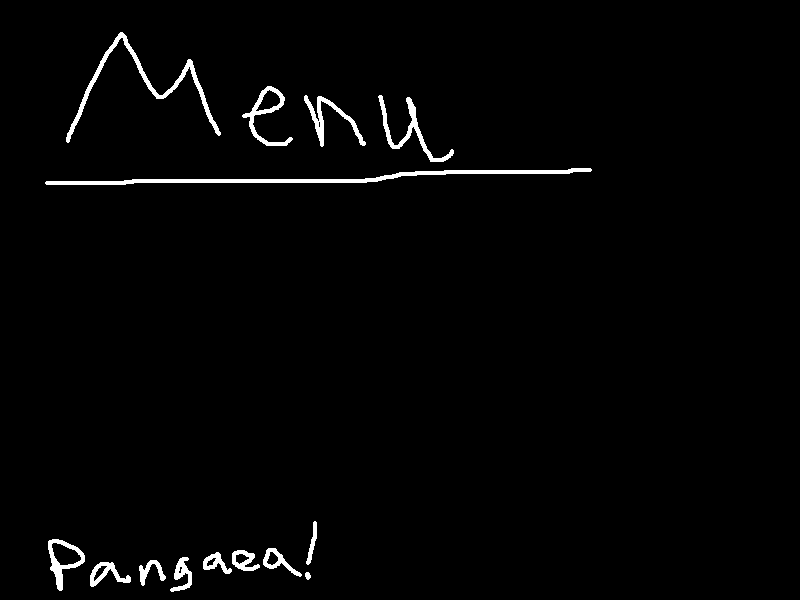 Menu
Pangaea!